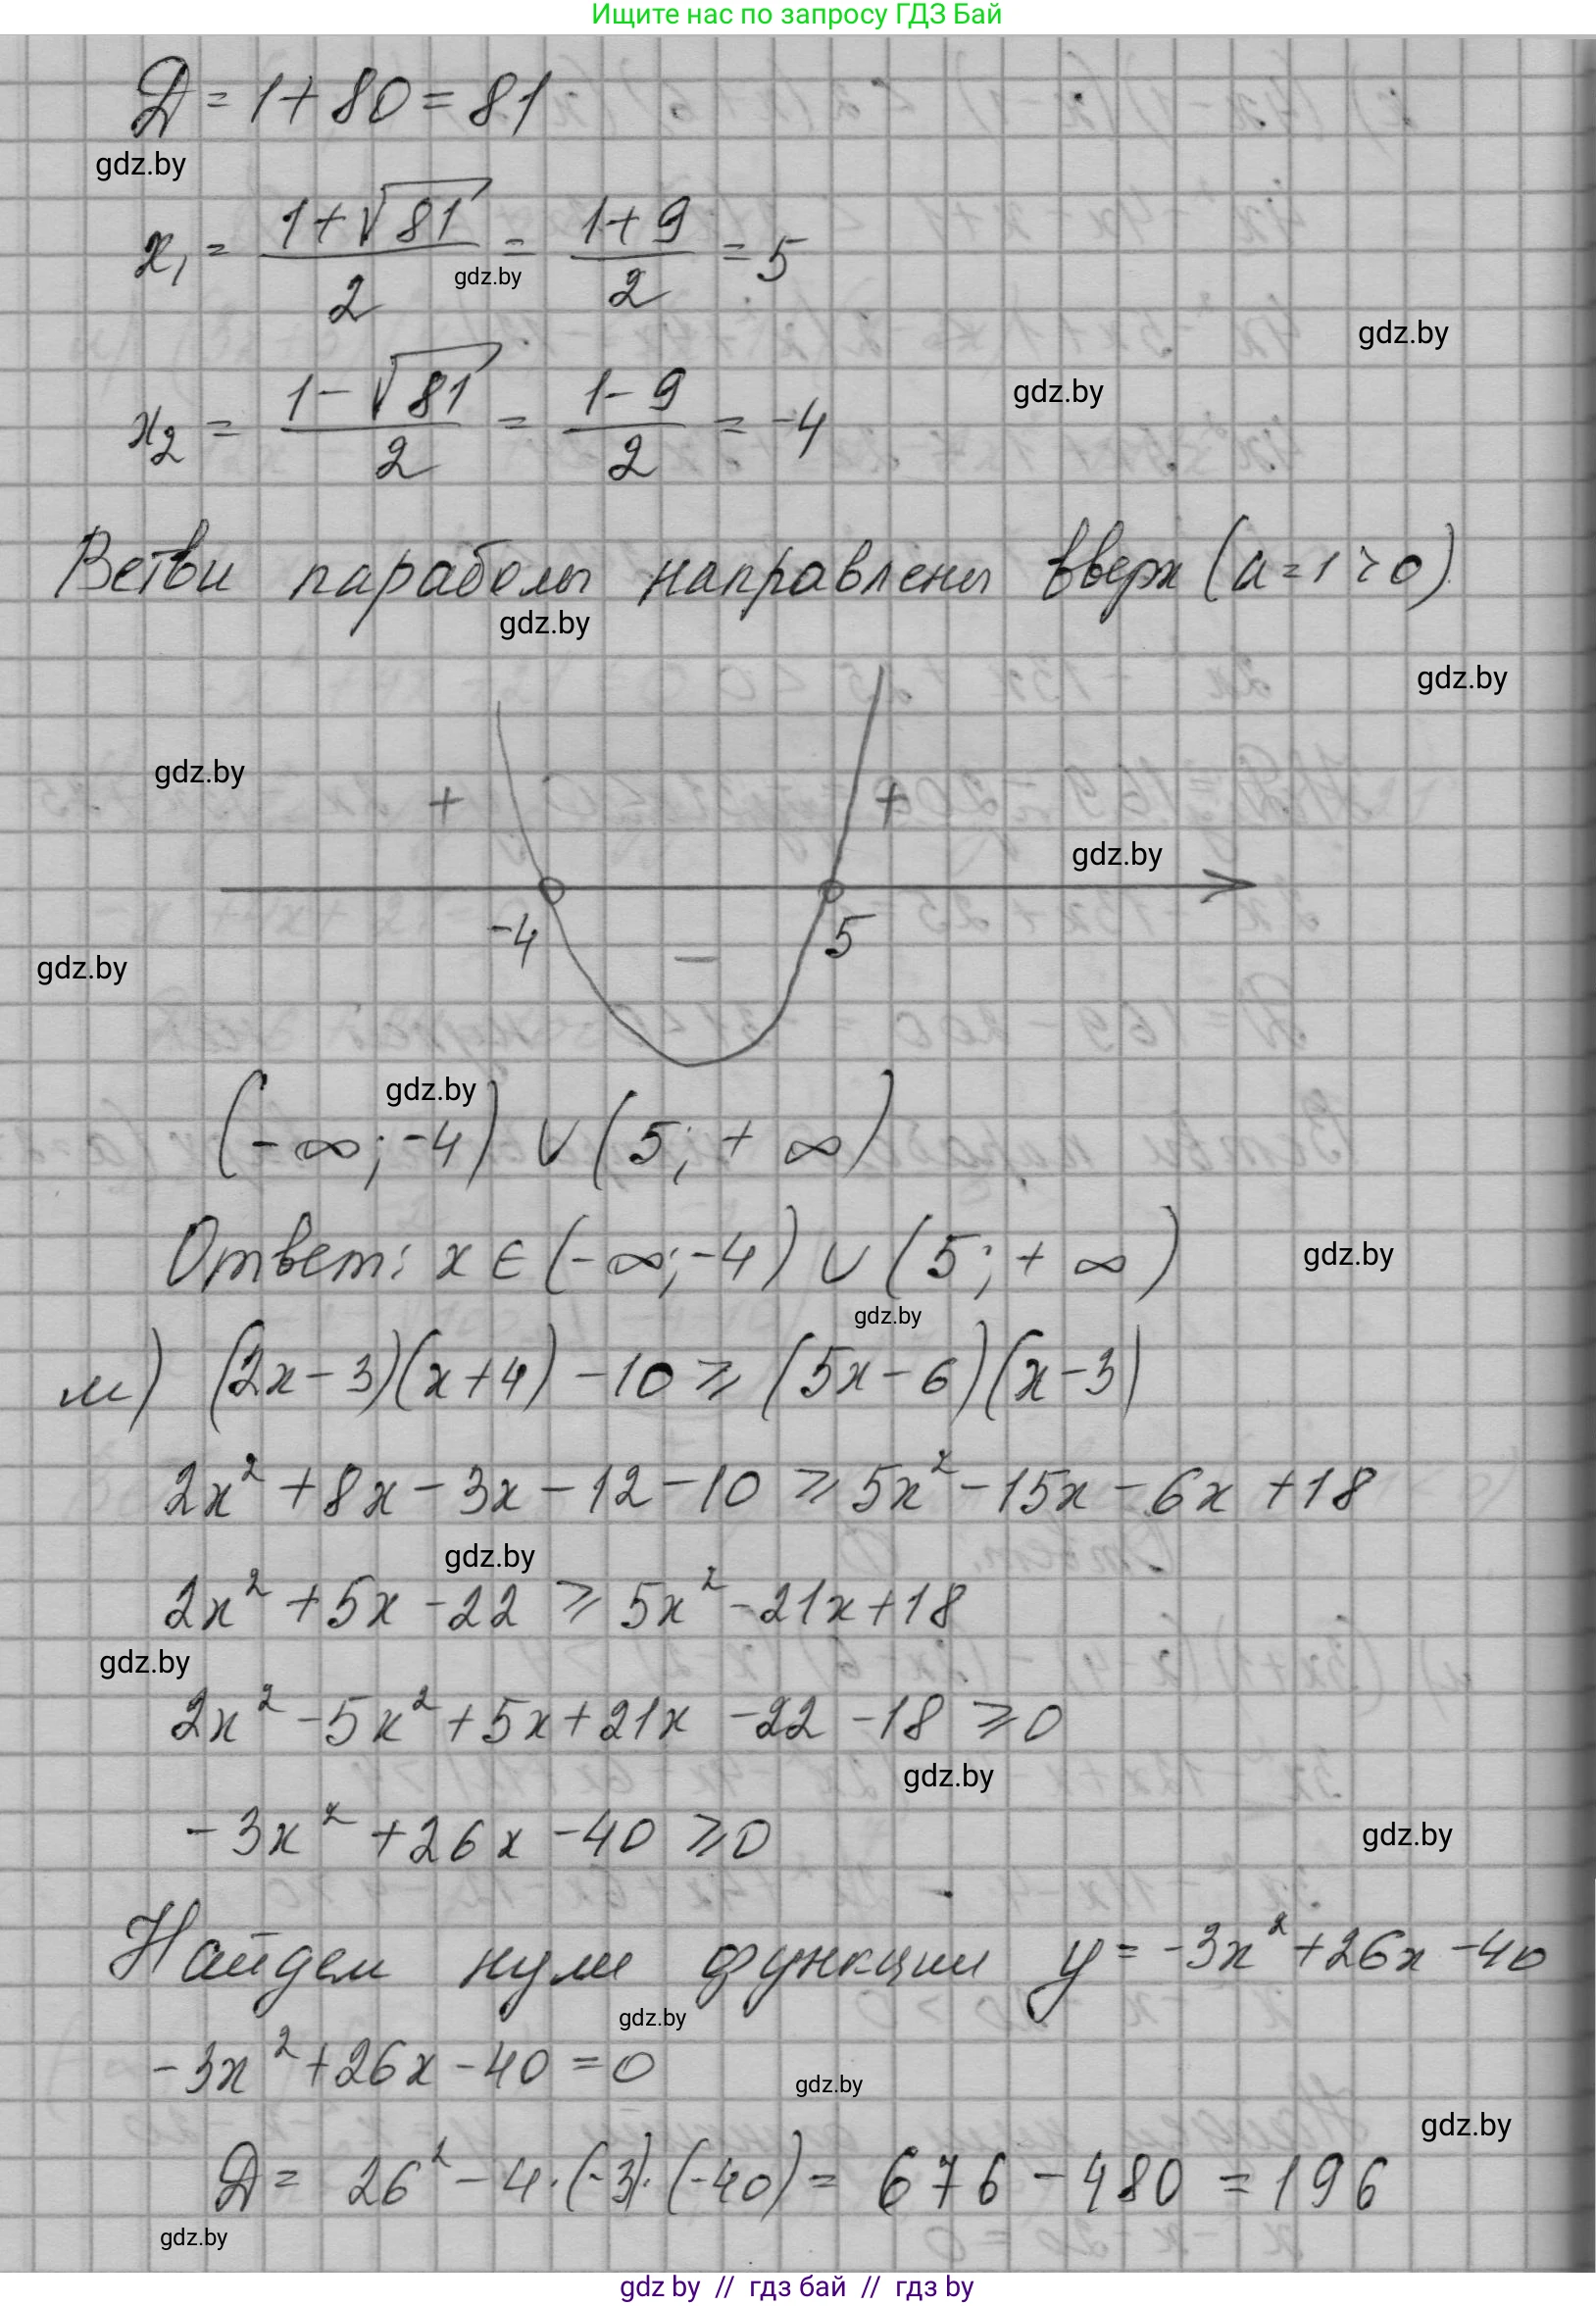 Ищите нас по запросу ГДЗ Бай
Д = 1 + 80 = 81
gdz.by
x₁ = (1+√81)/2 = (1+9)/2 = 5
gdz.by
gdz.by
gdz.by
x₂ = (1-√81)/2 = (1-9)/2 = -4
Ветви параболы направлены вверх (a=1>0).
gdz.by
gdz.by
gdz.by
+ +
gdz.by
-4 5
gdz.by
−
gdz.by
(-∞; -4) ∪ (5; +∞)
Ответ: x ∈ (-∞; -4) ∪ (5; +∞)
gdz.by
gdz.by
м) (2x-3)(x+4) -10 ⩾ (5x-6)(x-3)
2x² +8x -3x -12 -10 ⩾ 5x² -15x -6x +18
gdz.by
2x² +5x -22 ⩾ 5x² -21x +18
gdz.by
2x² -5x² +5x +21x -22 -18 ⩾0
gdz.by
-3x² +26x -40 ⩾0
gdz.by
Найдем нули функции y = -3x² +26x -40
gdz.by
-3x² +26x -40 =0
gdz.by
gdz.by
Д = 26² - 4·(-3)·(-40) = 676 -480 = 196
gdz.by
gdz by // гдз бай // гдз by